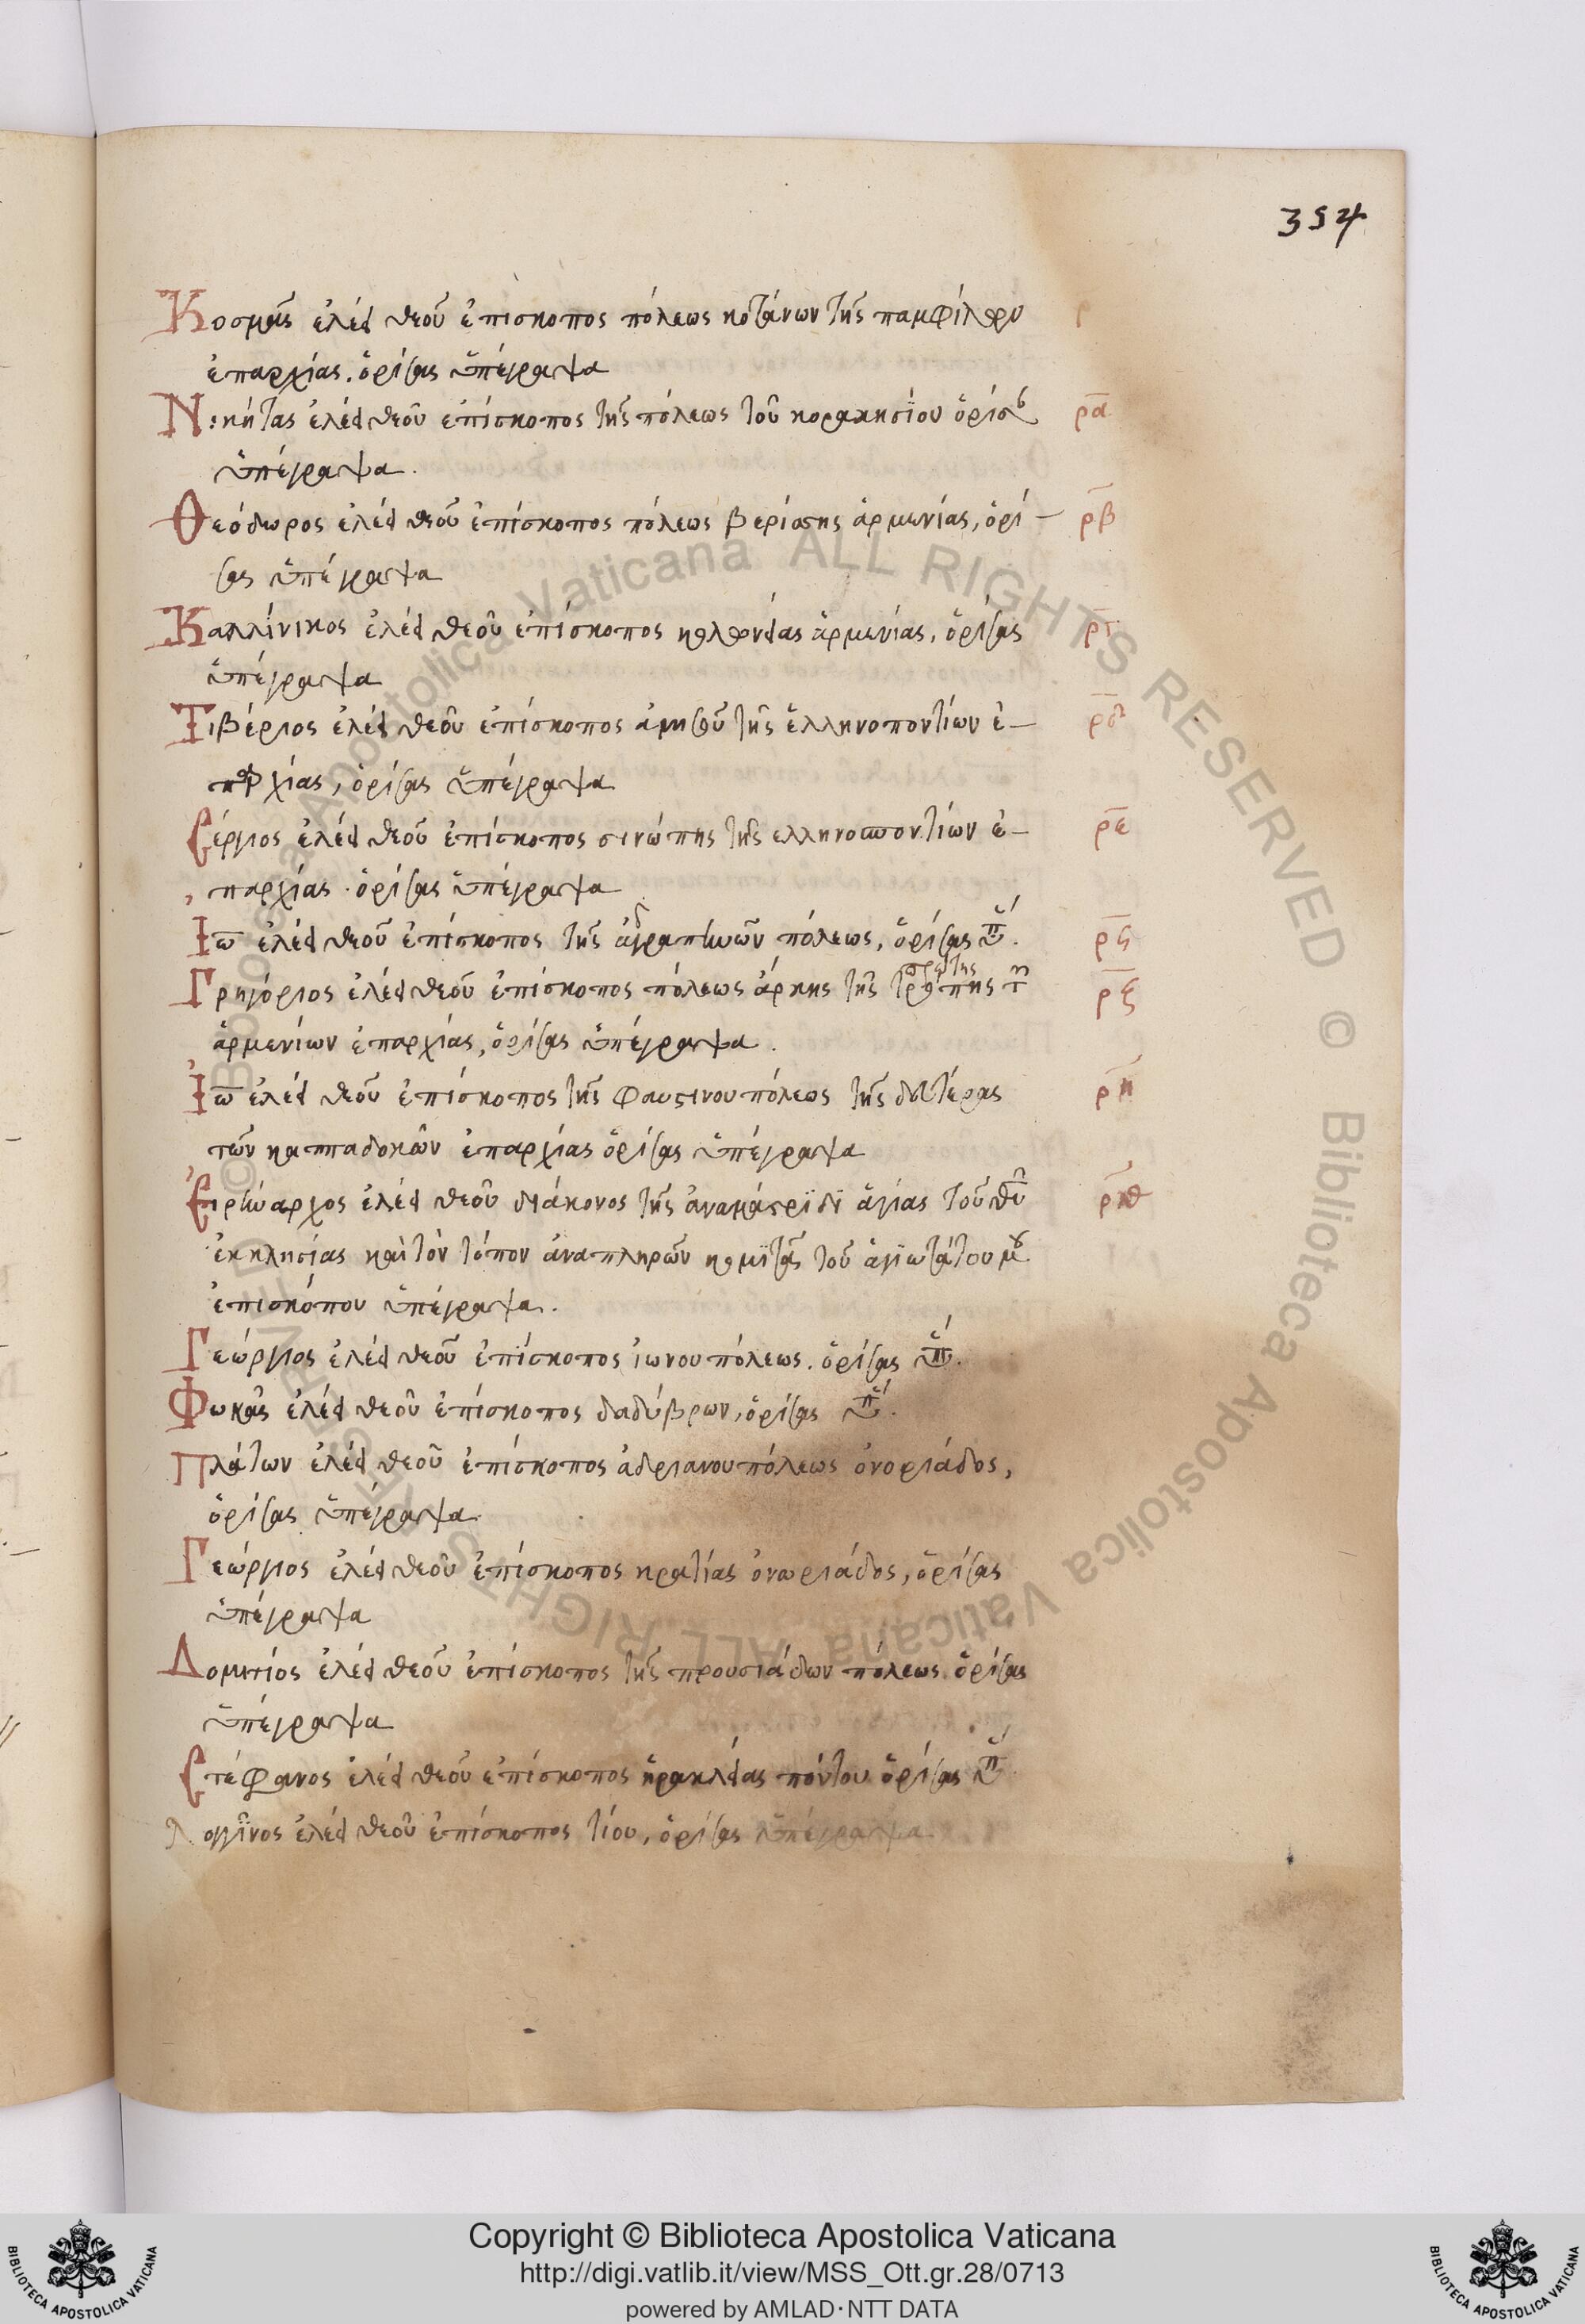 354
Κοσμᾶς ἐλέει θεοῦ ἐπίσκοπος πόλεως κοτάνων τῆς παμφίλων ρ
ἐπαρχίας. ὁρίσας ὑπέγραψα
Νικήτας ἐλέει θεοῦ ἐπίσκοπος τῆς πόλεως τοῦ κορακησίου ὁρίσας ρα
ὑπέγραψα.
Θεόδωρος ἐλέει θεοῦ ἐπίσκοπος πόλεως βερίσσης ἀρμενίας, ὁρί- ρβ
σας ὑπέγραψα
Καλλίνικος ἐλέει θεοῦ ἐπίσκοπος κολωνείας ἀρμενίας, ὁρίσας ργ
ὑπέγραψα
Τιβέριος ἐλέει θεοῦ ἐπίσκοπος ἀμησοῦ τῆς ἑλληνοποντίων ἐ- ρδ
παρχίας, ὁρίσας ὑπέγραψα
Σέργιος ἐλέει θεοῦ ἐπίσκοπος σινώπης τῆς ελληνοποντίων ἐ- ρε
παρχίας. ὁρίσας ὑπέγραψα
Ιω ἐλέει θεοῦ ἐπίσκοπος τῆς ἀδραπηνῶν πόλεως, ὁρίσας ὑπ. ρς
Γρηγόριος ἐλέει θεοῦ ἐπίσκοπος πόλεως ἄρκης τῆς πρώτης τῶν ρζ
ἀρμενίων ἐπαρχίας, ὁρίσας ὑπέγραψα.
Ἰω ἐλέει θεοῦ ἐπίσκοπος τῆς φαυστινουπόλεως τῆς δευτέρας ρη
τῶν καππαδοκῶν ἐπαρχίας ὁρίσας ὑπέγραψα
Σιρήναρχος ἐλέει θεοῦ διάκονος τῆς ἁγίας τοῦ θυ ρθ
ἐκκλησίας καὶ τὸν τόπον ἀναπληρῶν κοσμᾶ τοῦ ἁγιωτάτου μου
ἐπισκόπου ὑπέγραψα.
Γεώργιος ἐλέει θεοῦ ἐπίσκοπος ἰωνουπόλεως. ὁρίσας ὑπ.
Φωκᾶς ἐλέει θεοῦ ἐπίσκοπος δαδύβρων, ὁρίσας ὑπ.
Πλάτων ἐλέει θεοῦ ἐπίσκοπος ἀδριανουπόλεως ὀνοριάδος,
ὁρίσας ὑπέγραψα.
Γεώργιος ἐλέει θεοῦ ἐπίσκοπος κρατίας ὀνωριάδος, ὁρίσας
ὑπέγραψα
Δομιτίος ἐλέει θεοῦ ἐπίσκοπος τῆς προυσιάδων πόλεως. ὁρίσας
ὑπέγραψα
Στέφανος ἐλέει θεοῦ ἐπίσκοπος ἡρακλείας πόντου ὁρίσας ὑπ
Λογγῖνος ἐλέει θεοῦ ἐπίσκοπος τίου, ὁρίσας ὑπέγραψα
© Biblioteca Apostolica Vaticana ALL RIGHTS RESERVED © Biblioteca Apostolica Vaticana ALL RIGHTS RESERVED
Copyright © Biblioteca Apostolica Vaticana
http://digi.vatlib.it/view/MSS_Ott.gr.28/0713
powered by AMLAD·NTT DATA
BIBLIOTECA APOSTOLICA VATICANA
BIBLIOTECA APOSTOLICA VATICANA